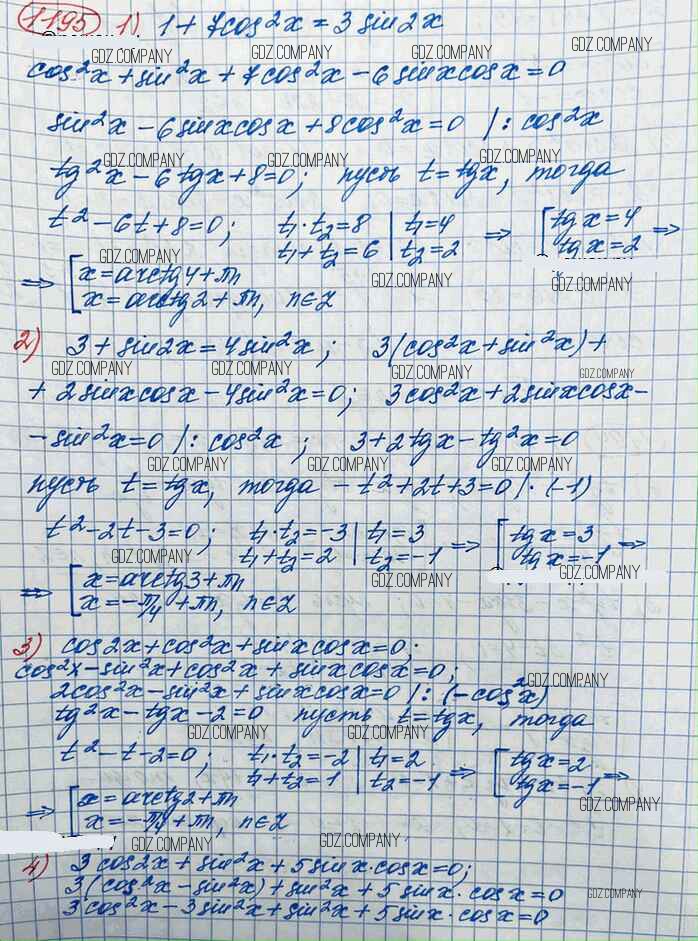 1195 1) 1 + 7cos²x = 3 sin2x
GDZ.COMPANY GDZ.COMPANY GDZ.COMPANY GDZ.COMPANY
cos²x + sin²x + 7cos²x - 6 sinxcosx = 0
sin²x - 6sinxcosx + 8cos²x = 0 /: cos²x
GDZ.COMPANY GDZ.COMPANY GDZ.COMPANY
tg²x - 6tgx + 8 = 0; пусть t = tgx, тогда
t² - 6t + 8 = 0; t₁·t₂ = 8 | t₁ = 4 ⇒ [ tgx = 4 ⇒
t₁ + t₂ = 6 | t₂ = 2 tgx = 2
GDZ.COMPANY GDZ.COMPANY GDZ.COMPANY
⇒ [ x = arctg4 + πn
x = arctg2 + πn, n∈Z
2) 3 + sin2x = 4sin²x; 3(cos²x + sin²x) +
GDZ.COMPANY GDZ.COMPANY GDZ.COMPANY GDZ.COMPANY
+ 2sinxcosx - 4sin²x = 0; 3cos²x + 2sinxcosx -
- sin²x = 0 /: cos²x; 3 + 2tgx - tg²x = 0
GDZ.COMPANY GDZ.COMPANY GDZ.COMPANY
пусть t = tgx, тогда - t² + 2t + 3 = 0 /· (-1)
t² - 2t - 3 = 0; t₁·t₂ = -3 | t₁ = 3 ⇒ [ tgx = 3 ⇒
t₁ + t₂ = 2 | t₂ = -1 tgx = -1
GDZ.COMPANY GDZ.COMPANY GDZ.COMPANY
⇒ [ x = arctg3 + πn
x = -π/4 + πn, n∈Z
3) cos2x + cos²x + sinxcosx = 0;
cos²x - sin²x + cos²x + sinxcosx = 0;
GDZ.COMPANY
2cos²x - sin²x + sinxcosx = 0 /: (-cos²x)
tg²x - tgx - 2 = 0 пусть t = tgx, тогда
GDZ.COMPANY GDZ.COMPANY GDZ.COMPANY
t² - t - 2 = 0; t₁·t₂ = -2 | t₁ = 2 ⇒ [ tgx = 2 ⇒
t₁ + t₂ = 1 | t₂ = -1 tgx = -1
⇒ [ x = arctg2 + πn
GDZ.COMPANY
x = -π/4 + πn, n∈Z
GDZ.COMPANY GDZ.COMPANY
4) 3 cos2x + sin²x + 5 sinx·cosx = 0;
3(cos²x - sin²x) + sin²x + 5 sinx·cosx = 0
GDZ.COMPANY
3cos²x - 3sin²x + sin²x + 5 sinx·cosx = 0